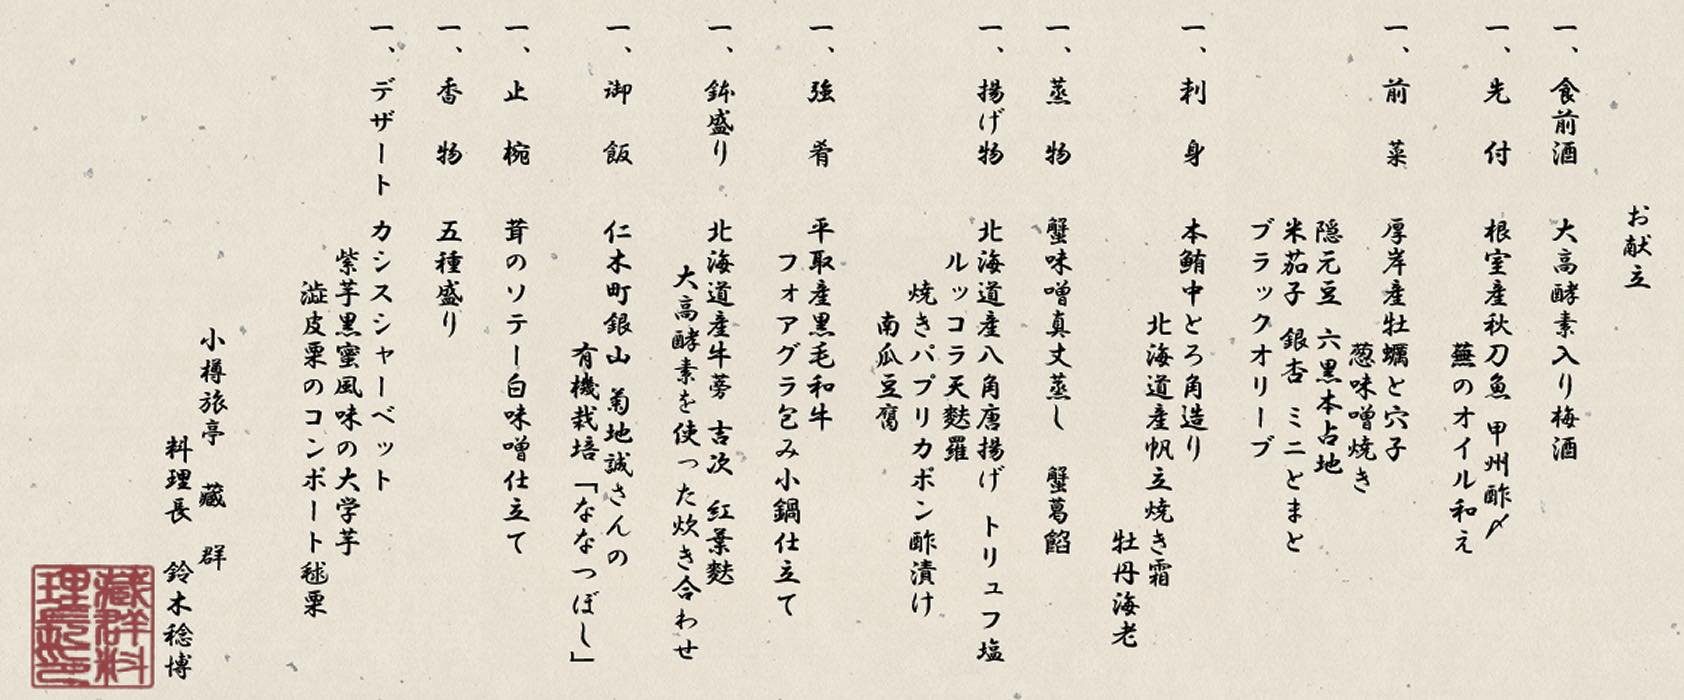 お献立
一、食前酒 大高酵素入り梅酒
一、先付 根室産秋刀魚 甲州酢〆
蕪のオイル和え
一、前菜 厚岸産牡蠣と穴子
葱味噌焼き
隠元豆 六黒本占地
米茄子 銀杏 ミニとまと
ブラックオリーブ
一、刺身 本鮪中とろ角造り
北海道産帆立焼き霜
牡丹海老
一、蒸物 蟹味噌真丈蒸し 蟹葛餡
一、揚げ物 北海道産八角唐揚げ トリュフ塩
ルッコラ天麩羅
焼きパプリカポン酢漬け
南瓜豆腐
一、強肴 平取産黒毛和牛
フォアグラ包み小鍋仕立て
一、鉢盛り 北海道産牛蒡 吉次 紅葉麩
大高酵素を使った炊き合わせ
一、御飯 仁木町銀山 菊地誠さんの
有機栽培「ななつぼし」
一、止椀 茸のソテー白味噌仕立て
一、香物 五種盛り
一、デザート カシスシャーベット
紫芋黒蜜風味の大学芋
澁皮栗のコンポート毬栗
小樽旅亭 藏群
料理長 鈴木稔博
藏群料
理長之印